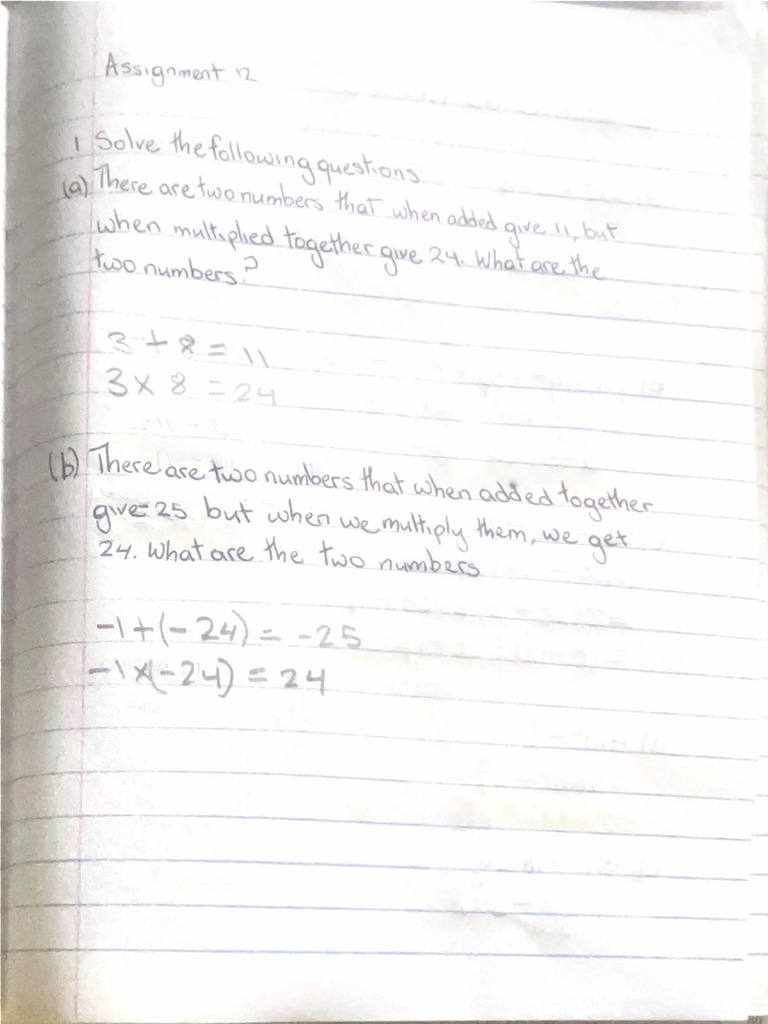 Assignment 12
1 Solve the following questions
(a) There are two numbers that when added give 11, but
when multiplied together give 24. What are the
two numbers?
3 + 8 = 11
3 x 8 = 24
(b) There are two numbers that when added together
give -25 but when we multiply them, we get
24. What are the two numbers
-1 + (-24) = -25
-1 x (-24) = 24